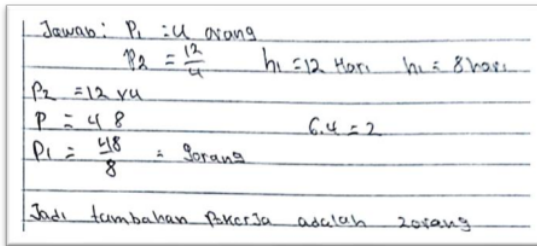 Jawab: P₁ : 4 orang
P2 = 12/4 h₁ = 12 Hari h₁ = 8 hari
P2 = 12 x 4
P = 48 6.4 = 2
P₁ = 48/8 = 9orang
Jadi tambahan PeKerJa adalah 2orang